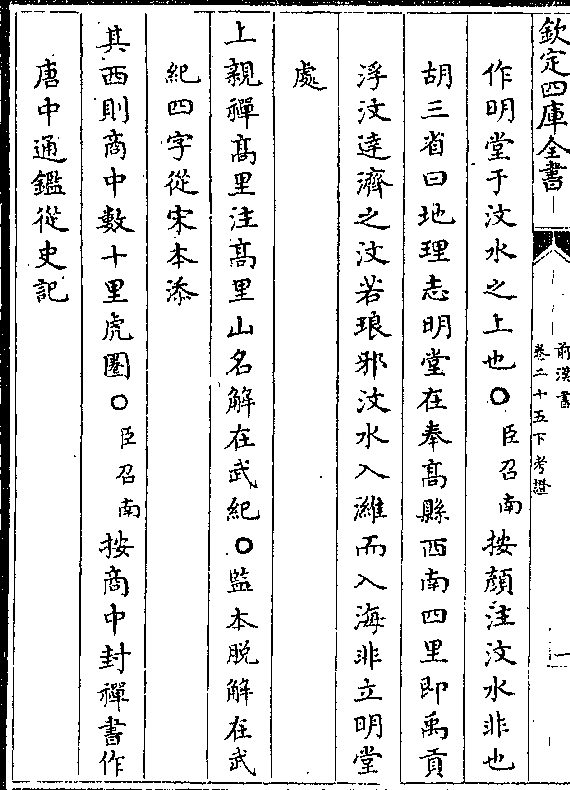 欽定四庫全書
前漢書
卷二十五下考證
一
作明堂于汶水之上也○臣召南按顔注汶水非也
胡三省曰地理志明堂在奉高縣西南四里即禹貢
浮汶逹濟之汶若琅邪汶水入濰而入海非立明堂
處
上親禪高里注高里山名解在武紀○監本脱解在武
紀四字從宋本添
其西則商中數十里虎圏○臣召南按商中封禪書作
唐中通鑑從史記